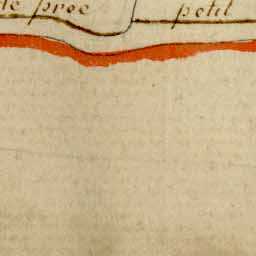 de pree petit